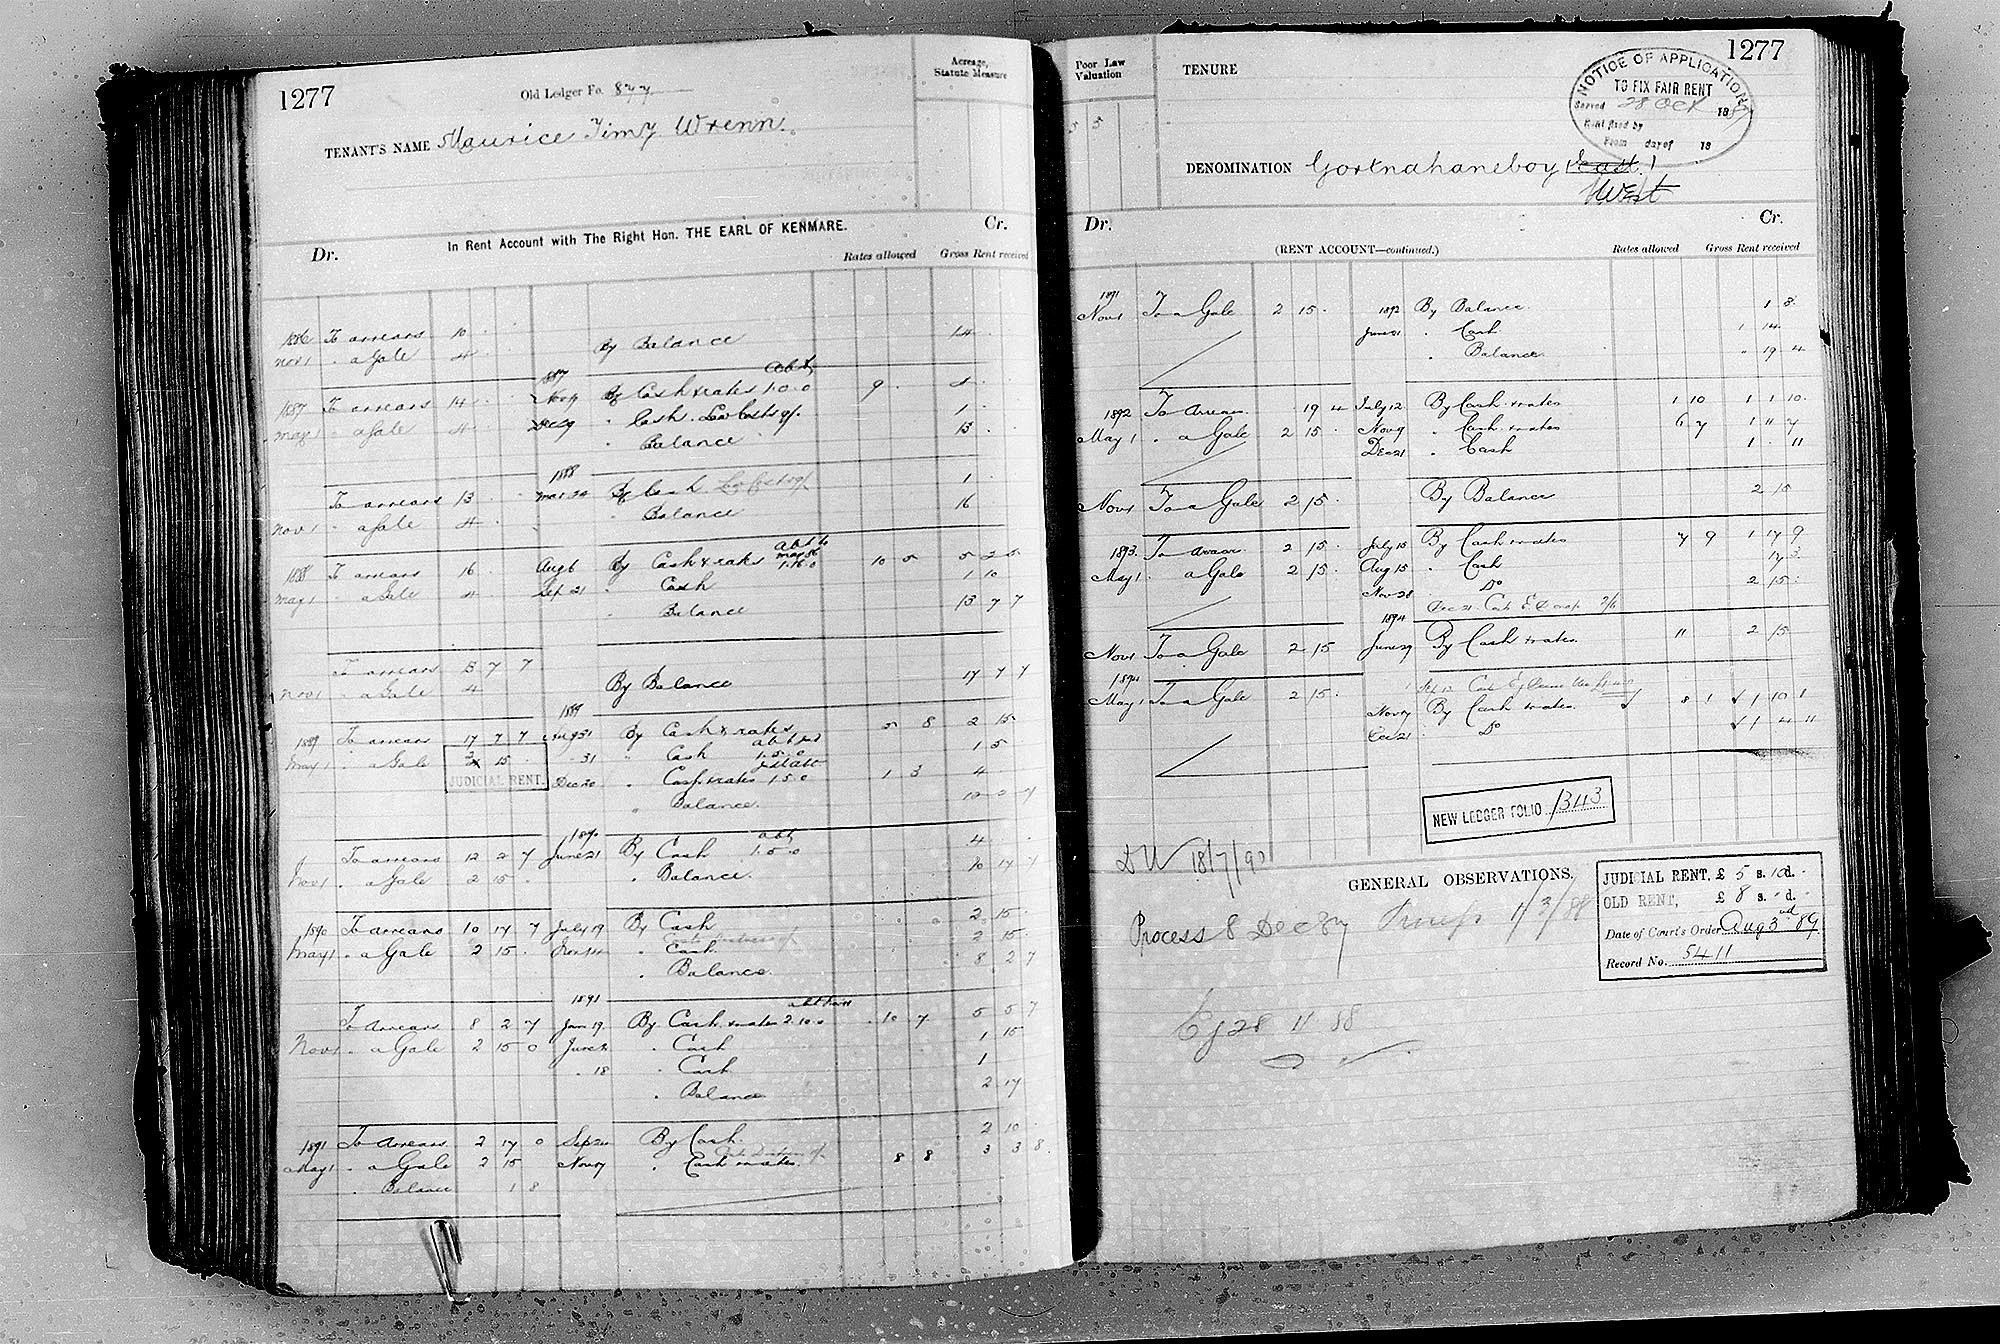 1277
Old Ledger Fo. 877
Acreage, Statute Measure
TENANT'S NAME Maurice Timy Wrenn
In Rent Account with The Right Hon. THE EARL OF KENMARE.
Dr. Cr.
Rates allowed Gross Rent received
1886 To arrears 10
Nov 1 " a Gale 4 By Balance 14
1887 abt
1887 To arrears 14 Nov 9 By Cash & rates 1.0.0 9
May 1 " a Gale 4 Dec 9 " Cash 1
" Balance 13
1888
To arrears 13 Mar 24 By Cash 1
Nov 1 " a Gale 4 " Balance 16
1888 To arrears 16 Aug 6 By Cash & rates 1.16.0 10 5 5 2 5
May 1 " a Gale 4 Sep 21 " Cash 1 10
" Balance 13 7 7
To arrears 13 7 7
Nov 1 " a Gale 4 By Balance 17 7 7
1889
1889 To arrears 17 7 7 Aug 31 By Cash & rates 5 8 2 15
May 1 " a Gale 2 15 " 31 " Cash 1.5.0 1 5
JUDICIAL RENT. Dec 20 " Cash & rates 1.5.0 1 3 4
" Balance
1890 abt
To arrears 12 2 7 June 21 By Cash 1.5.0 4
Nov 1 " a Gale 2 15 " Balance 10 17 7
1890 To arrears 10 17 7 July 19 By Cash 2 15
May 1 " a Gale 2 15 " Cash 2 15
" Balance 8 2 7
1891
To Arrears 8 2 7 Jan 19 By Cash & rates 2.10.0 10 7 5 5 7
Nov 1 " a Gale 2 15 0 June 2 " Cash 1 15
" 18 " Cash 1
" Balance 2 17
1891 To Arrears 2 17 0 Sep 24 By Cash 2 10
May 1 " a Gale 2 15 Nov 7 " Cash & rates 8 8 3 3 8
" Balance 1 8
1277
Poor Law Valuation
TENURE
5 5
NOTICE OF APPLICATION
TO FIX FAIR RENT
Served 28 Oct 1887
Rent fixed by
From day of 18
DENOMINATION Gortnahaneboy East
West
Dr. Cr.
(RENT ACCOUNT—continued.)
Rates allowed Gross Rent received
1891
Nov 1 To a Gale 2 15 1892 By Balance 1 8
June 21 " Cash 1 14
" Balance " 19 4
1892 To Arrears 19 4 July 12 By Cash & rates 1 10 1 1 10
May 1 " a Gale 2 15 Nov 9 " Cash & rates 6 7 1 11 7
Dec 21 " Cash 1 " 11
Nov 1 To a Gale 2 15 By Balance 2 15
1893 To arrear 2 15 July 15 By Cash & rates 7 9 1 17 9
May 1 a Gale 2 15 Aug 15 " Cash 17 3
Nov 28 Do 2 15
Dec 21 Cash 2/6
1894
Nov 1 To a Gale 2 15 June 29 By Cash & rates 11 2 15
1894
May 1 To a Gale 2 15
Nov 7 By Cash & rates 8 1 1 10 1
Dec 21 Do 1 4 11
NEW LEDGER FOLIO 1343
DW 18/7/90
GENERAL OBSERVATIONS.
Process 8 Dec 87
JUDICIAL RENT, £ 5 s. 10 d.
OLD RENT, £ 8 s. " d.
Date of Court's Order Aug 3rd 89
Record No. 5411
Ej 28 11 88